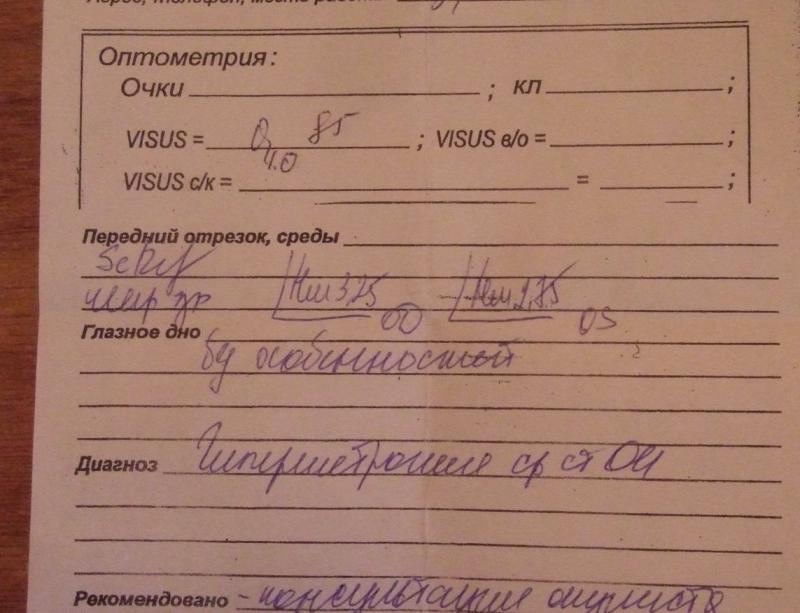 Адрес, телефон, место работы
Оптометрия:
Очки ; КЛ ;
VISUS = 0, 85 ; VISUS в/о = ;
1.0
VISUS с/к = = ;
Передний отрезок, среды
Hm 3,75 OD Hm 2,75 OS
Глазное дно
б/ особенностей
Диагноз Гиперметропия ср ст ОИ
Рекомендовано - консультация окулиста